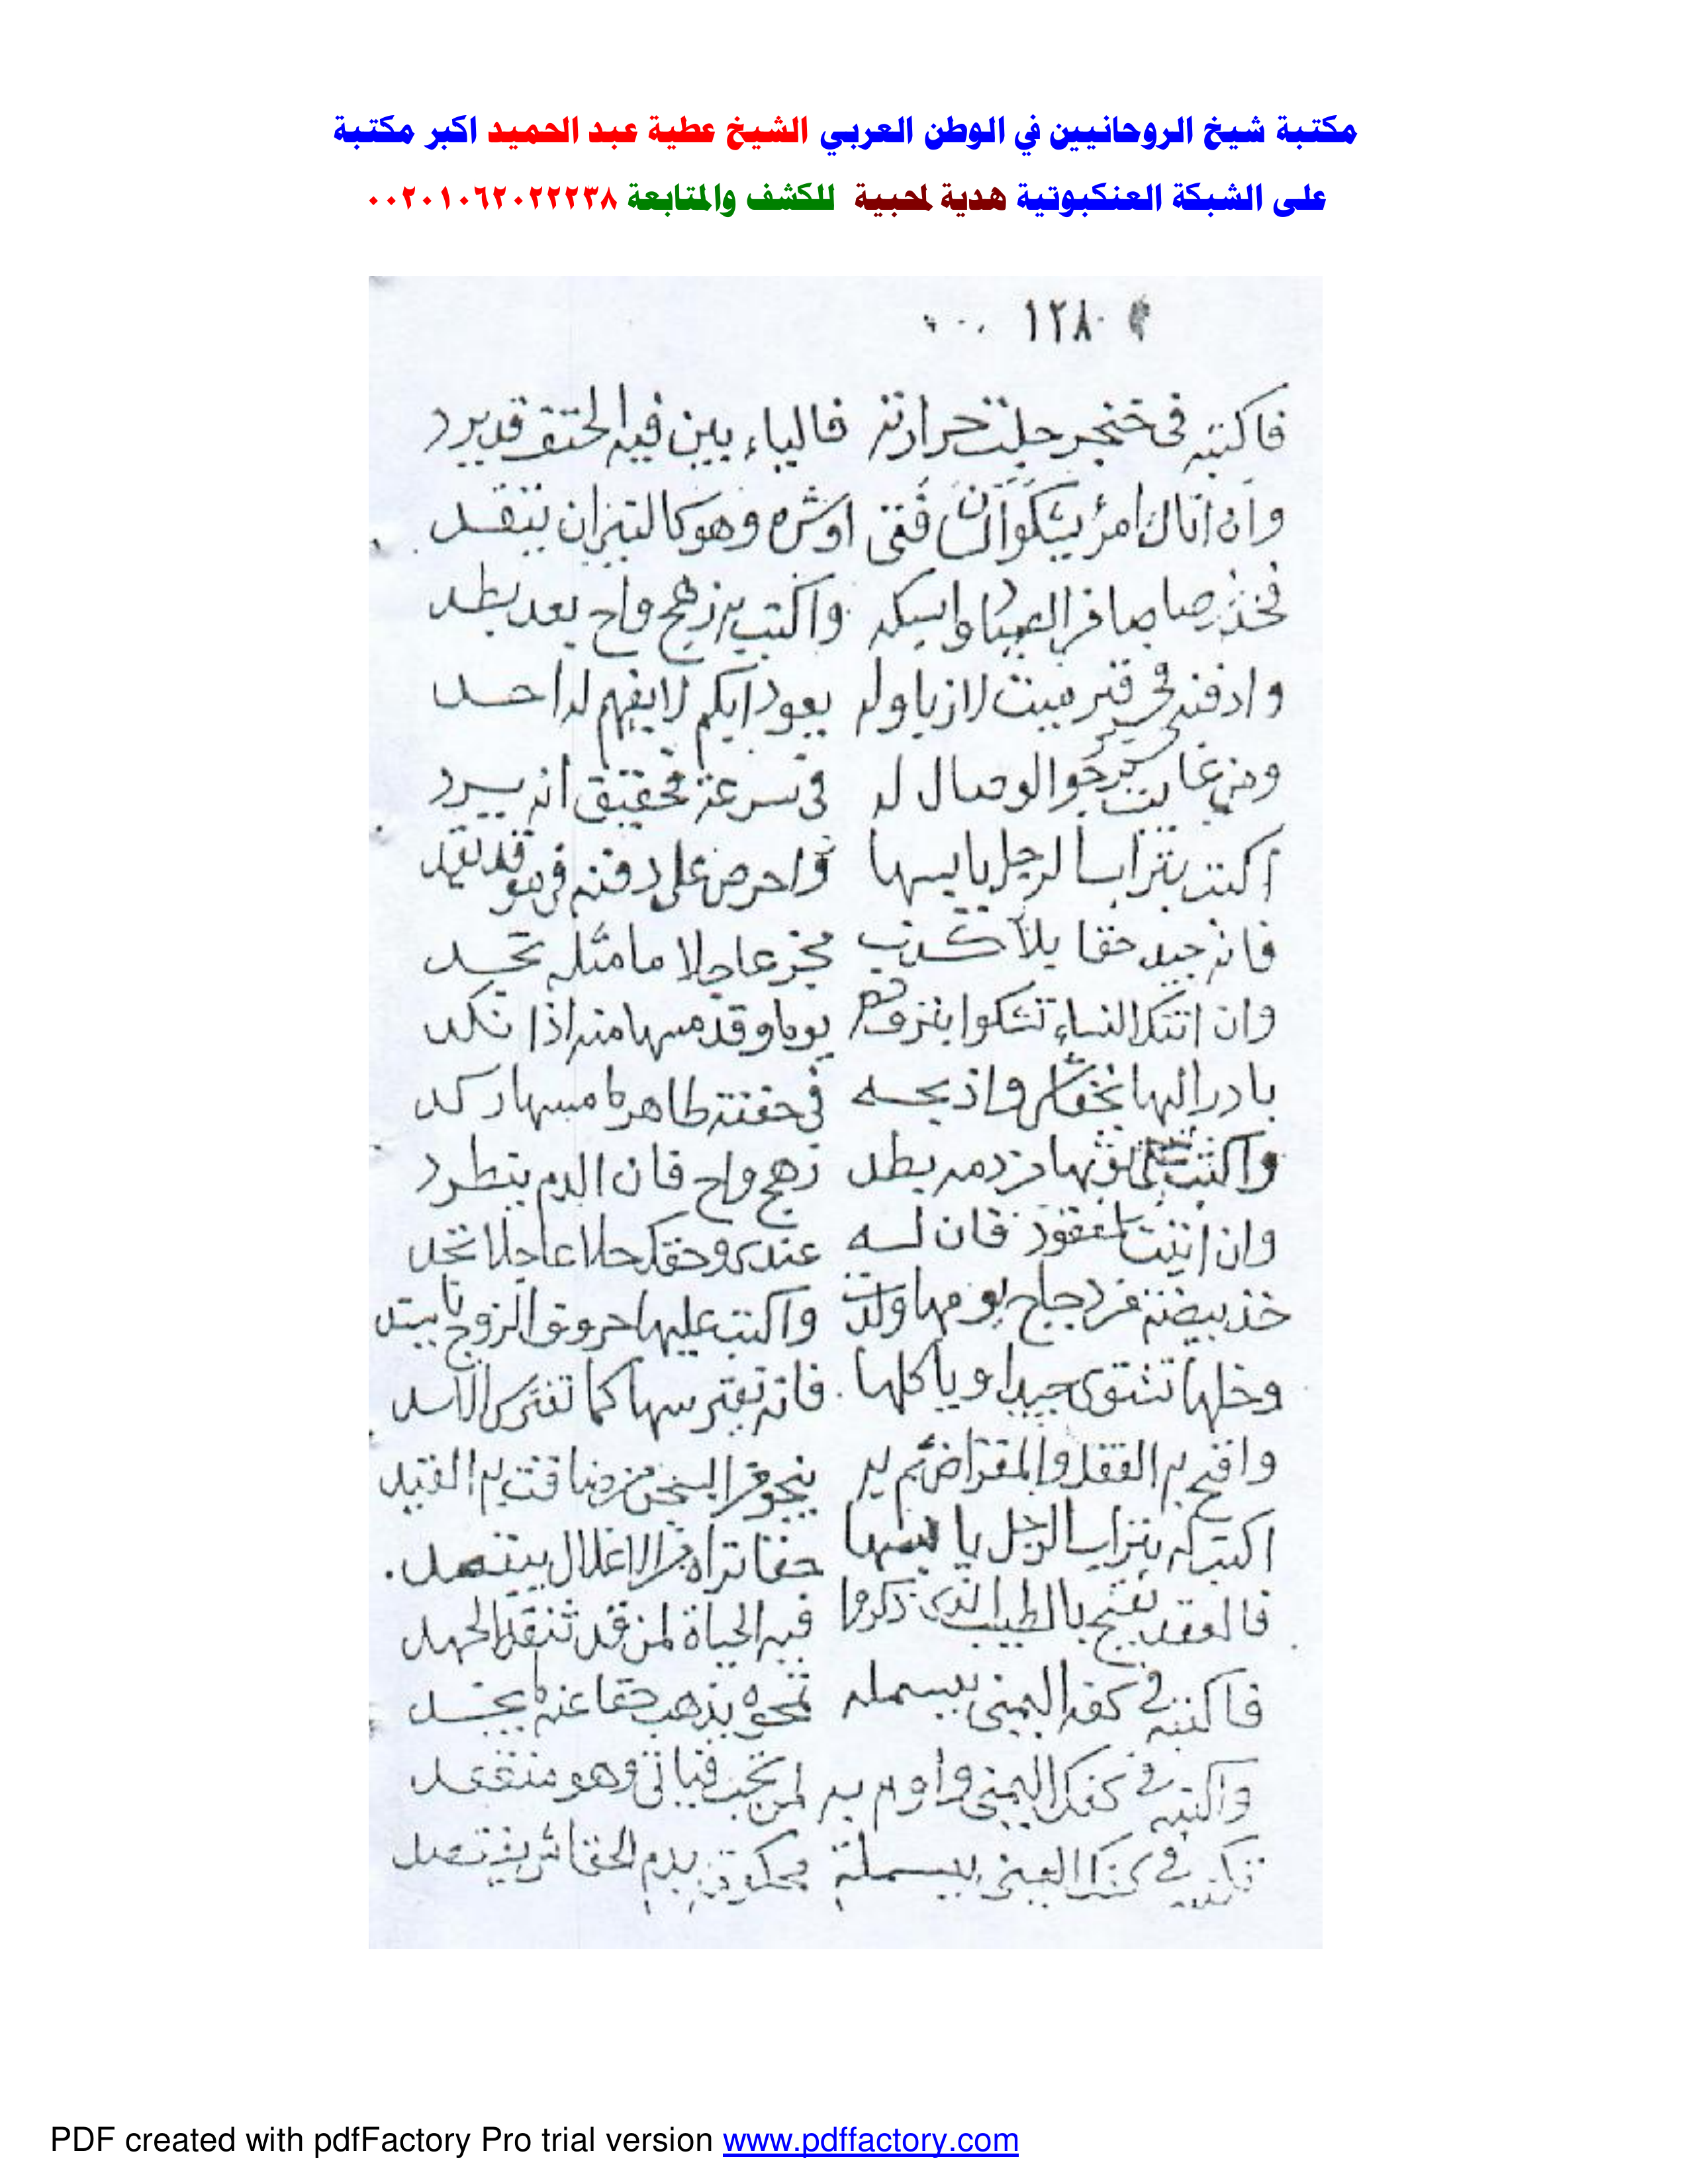 مكتبة شيخ الروحانيين في الوطن العربي الشيخ عطية عبد الحميد اكبر مكتبة
على الشبكة العنكبوتية هدية لمحبية للكشف والمتابعة ٠٠٢٠١٠٦٢٠٢٢٢٣٨
١٢٨
فاكتبه فى خنجر جلت حرارته فالياء بين فيه قد يرد
وان اتاك امرؤ يشكو فتى اوشره وهو كالنيران يتقد
فخذ رصاصا واسبكه واكتب به زهج واح بعد بطد
وادفنه فى قبر ميت لازيا وله يعود ابكم لا يفهم له احد
ومن يرجو الوصال له فى سرعة تحقيق انه يرد
اكتب بتراب الرجل يابسها واحرص على دفنه فهو قد
فانه جيد حقا بلا كذب عاجلا ما مثله تجد
وان اتتك النساء تشكوا بنزف دم يوما وقد مسها منه اذا نكد
بادر اليها واذبحه فى طاهر ما مسها ركد
واكتب على ثوبها من دمه بطد زهج واح فان الدم ينطرد
وان اتيت لمعقود فان له عندى وحقك حلا عاجلا تجد
خذ بيضة من دجاج يومها ولدت واكتب عليها حروف الزوج يا
وخلها تشتوى جيدا وياكلها فانه يفترسها كما تفترس الاسد
وافتح به القفل والمقراض ثم به ينجو من السجن من ضاقت به القيد
اكتبه بتراب الرجل يابسها حقا تراه من الاغلال
فالعقد يفتح بالطيب الذى ذكروا فيه الحياة لمن قد
فاكتبه فى كفه اليمنى ببسملة تمحوه يذهب حقا عنه ما يجد
واكتبه فى كفك اليمنى واوم به لمن تحب فياتى وهو
فى كفك اليمنى ببسملة بدم
PDF created with pdfFactory Pro trial version www.pdffactory.com